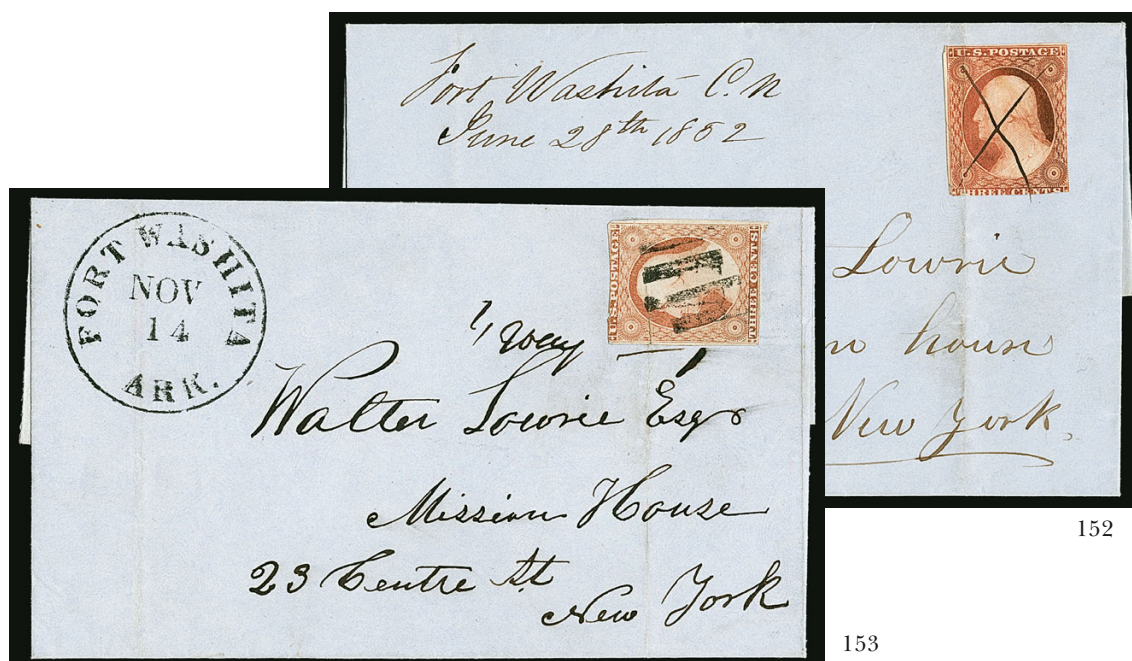 Fort Washita C.N
June 28th 1852
U.S. POSTAGE
THREE CENTS
Lowrie
n house
New York.
152
FORT WASHITA
NOV
14
ARK.
U.S. POSTAGE
THREE CENTS
way
Walter Lowrie Esqr
Mission House
23 Centre St
New York
153